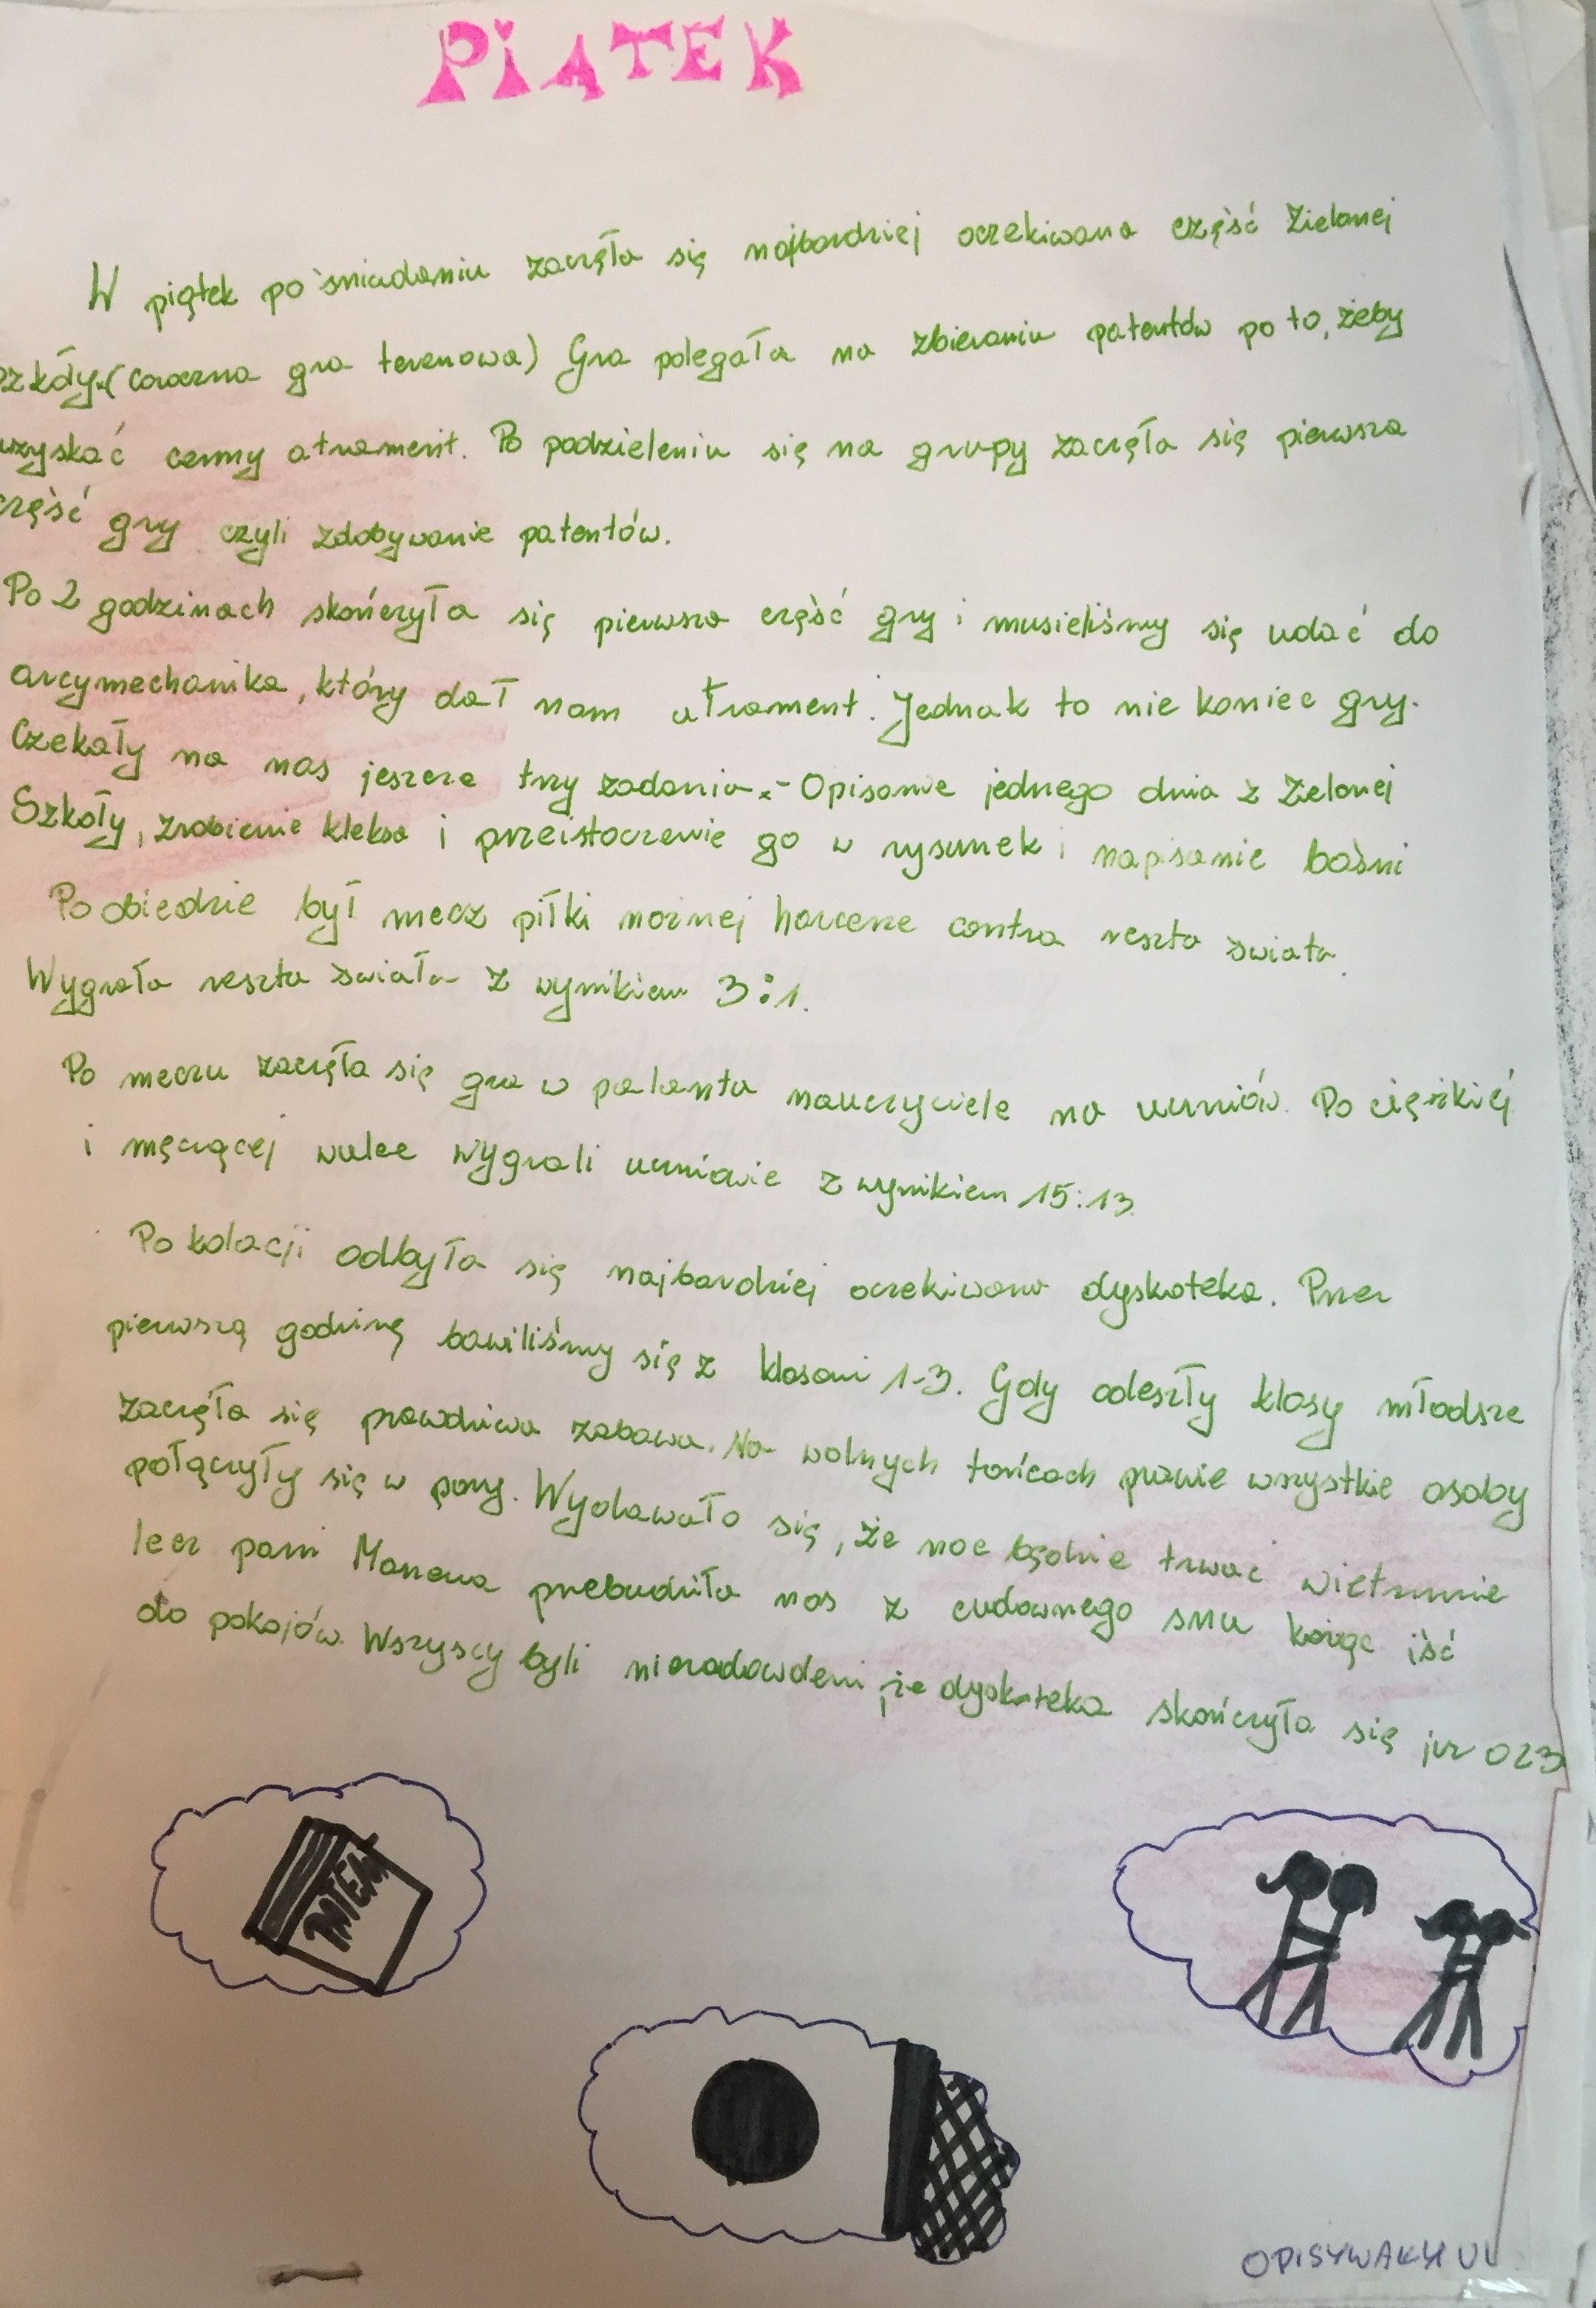 PIĄTEK
W piątek po śniadaniu zaczęła się najbardziej oczekiwana część Zielonej
szkoły.(coroczna gra terenowa) Gra polegała na zbieraniu patentów po to, żeby
uzyskać cenny atrament. Po podzieleniu się na grupy zaczęła się pierwsza
część gry czyli zdobywanie patentów.
Po 2 godzinach skończyła się pierwsza część gry i musieliśmy się udać do
arcymechanika, który dał nam atrament. Jednak to nie koniec gry.
Czekały na nas jeszcze trzy zadania:- Opisanie jednego dnia z Zielonej
Szkoły, zrobienie kleksa i przeistoczenie go w rysunek i napisanie baśni
Po obiedzie był mecz piłki nożnej harcerze contra reszta świata.
Wygrała reszta świata z wynikiem 3:1.
Po meczu zaczęła się gra w palanta nauczyciele na uczniów. Po ciężkiej
i męczącej walce wygrali uczniowie z wynikiem 15:13
Po kolacji odbyła się najbardziej oczekiwana dyskoteka. Przez
pierwszą godzinę bawiliśmy się z klasami 1-3. Gdy odeszły klasy młodsze
zaczęła się prawdziwa zabawa. Na wolnych tańcach prawie wszystkie osoby
połączyły się w pary. Wydawało się, że noc będzie trwać wietrznie
lecz pani przebudziła nas z cudownego snu każąc iść
do pokojów. Wszyscy byli niezadowoleni, że dyskoteka skończyła się już o 23
PATENT